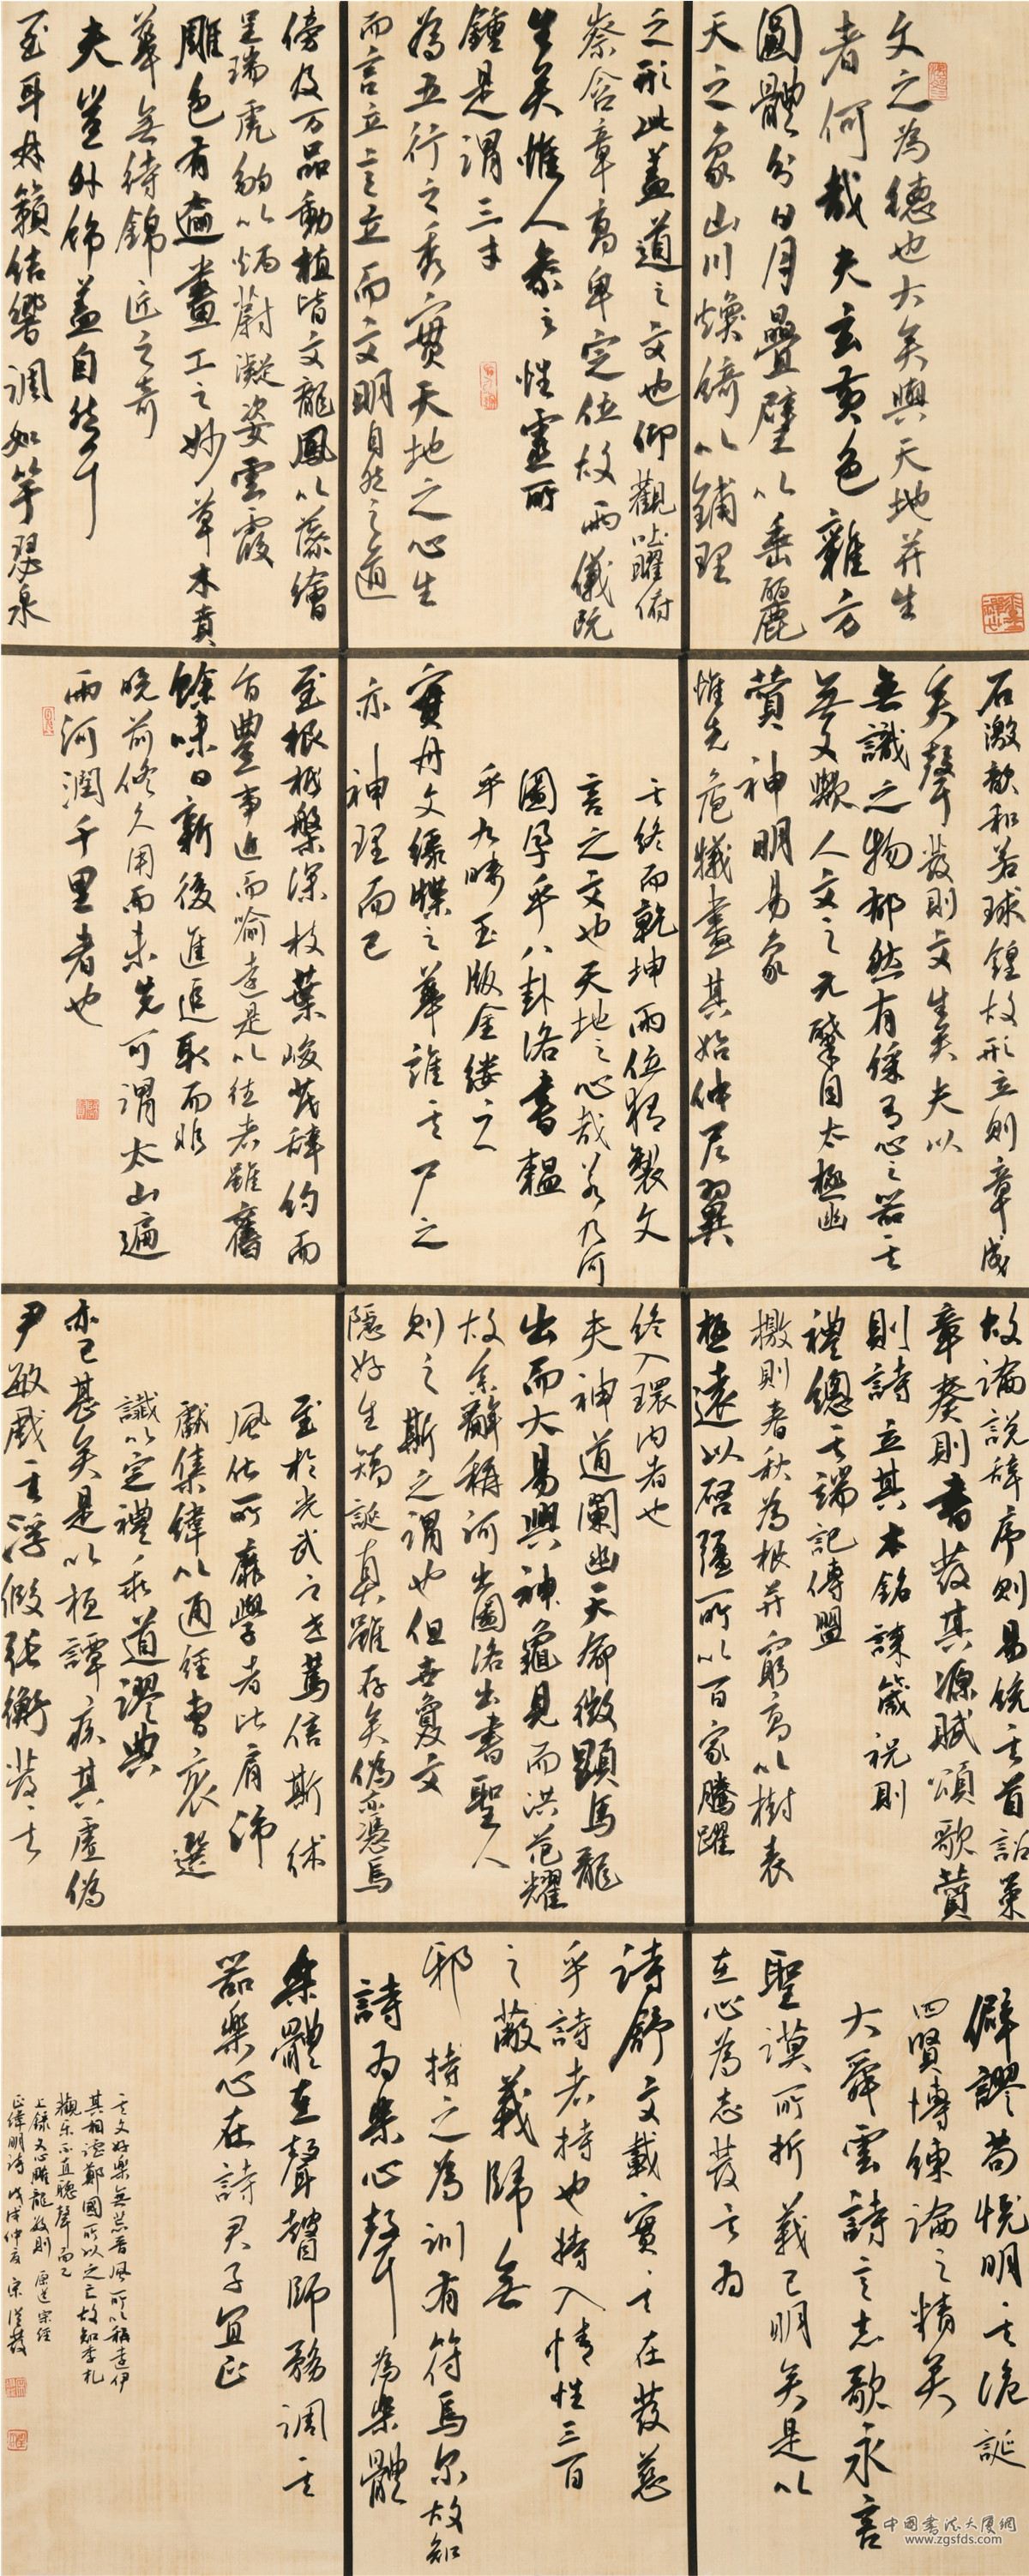 文之為德也大矣與天地并生
者何哉夫玄黃色雜方
圓體分日月疊璧以垂麗
天之象山川煥綺以鋪理
之形此蓋道之文也仰觀吐曜俯
察含章高卑定位故兩儀既
生矣惟人參之性靈所
鍾是謂三才
為五行之秀實天地之心生
而言立言立而文明自然之道
傍及万品動植皆文龍鳳以藻繪
呈瑞虎豹以炳蔚凝姿雲霞
雕色有逾畫工之妙草木賁
華無待錦匠之奇
夫豈外飾蓋自然耳
至耳林籟結響調如竽瑟泉
石激韻和若球鍠故形立則章成
矣聲發則文生矣夫以
無識之物郁然有彩有心之器其
無文歟人文之元肇自太極幽
贊神明易象
惟先庖犧畫其始仲尼翼
其終而乾坤兩位獨製文
言之文也天地之心哉若乃河
圖孕乎八卦洛書韞
乎九疇玉版金鏤之
實丹文綠牒之華誰其尸之
亦神理而已
至根柢槃深枝葉峻茂辭約而
旨豐事近而喻遠是以往者雖舊
餘味日新後進追取而非
晚前修久用而未先可謂太山遍
雨河潤千里者也
故論說辭序則易統其首詔策
章奏則書發其源賦頌歌贊
則詩立其本銘誄箴祝則
禮總其端記傳盟
檄則春秋為根并窮高以樹表
極遠以啓疆所以百家騰躍
終入環內者也
夫神道闡幽天命微顯馬龍
出而大易興神龜見而洪范耀
故系辭稱河出圖洛出書聖人
則之斯之謂也但世敻文
隱好生矯誕真雖存矣偽亦憑焉
至於光武之世篤信斯術
風化所靡學者比肩沛
獻集緯以通經曹褒選
讖以定禮乖道謬典
亦已甚矣是以桓譚疾其虛偽
尹敏戲其浮假張衡發其
僻謬荀悅明其詭誕
四賢博練論之精矣
大舜雲詩言志歌永言
聖謨所析義已明矣是以
在心為志發言為
詩舒文載實其在茲
乎詩者持也持人情性三百
之蔽義歸無
邪持之為訓有符焉尔故知
詩為樂心聲為樂體
樂體在聲瞽師務調其
器樂心在詩君子宜正
其文好樂無荒晉風所以稱遠伊
其相謔鄭國所以之亡故知季札
觀樂不直聽聲而已
上錄文心雕龍數則原道宗經
正緯明詩戊戌仲夏宋
中國書法大廈網
www.zgsfds.com